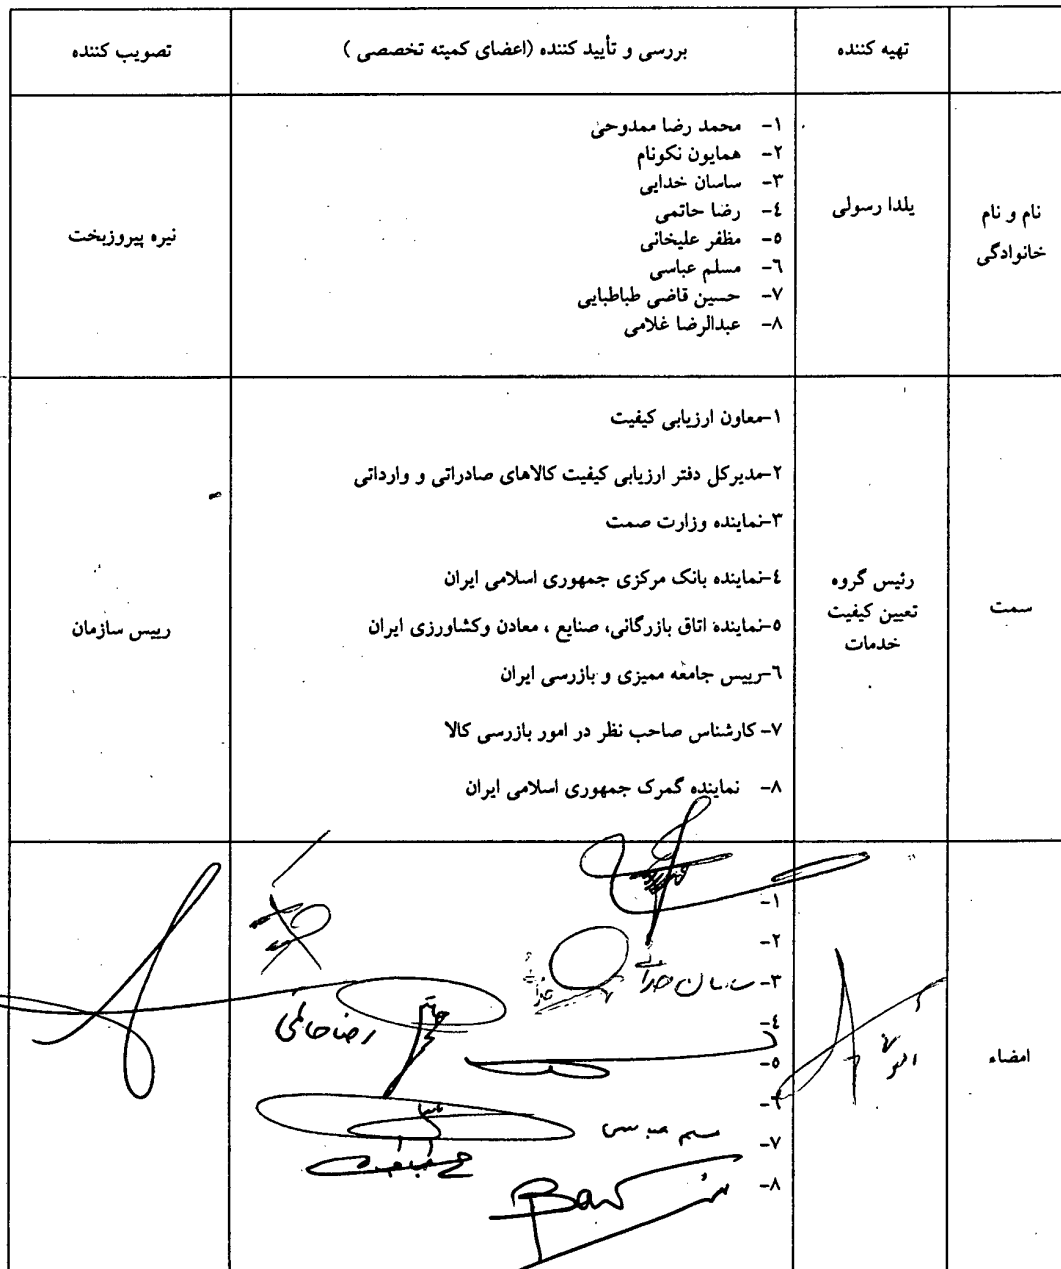 تهیه کننده
بررسی و تأیید کننده (اعضای کمیته تخصصی )
تصویب کننده
نام و نام
خانوادگی
یلدا رسولی
۱- محمد رضا ممدوحی
۲- همایون نکونام
۳- ساسان خدایی
٤- رضا حاتمی
٥- مظفر علیخانی
٦- مسلم عباسی
۷- حسین قاضی طباطبایی
۸- عبدالرضا غلامی
نیره پیروزبخت
سمت
رئیس گروه
تعیین کیفیت
خدمات
۱-معاون ارزیابی کیفیت
۲-مدیرکل دفتر ارزیابی کیفیت کالاهای صادراتی و وارداتی
۳-نماینده وزارت صمت
٤-نماینده بانک مرکزی جمهوری اسلامی ایران
٥-نماینده اتاق بازرگانی، صنایع ، معادن وکشاورزی ایران
٦-رییس جامعه ممیزی و بازرسی ایران
۷- کارشناس صاحب نظر در امور بازرسی کالا
۸- نماینده گمرک جمهوری اسلامی ایران
رییس سازمان
امضاء
۱-
۲-
۳- ساسان خدائی
٤-
رضا حاتمی
٥-
٦-
۷-
مسلم عباسی
۸-